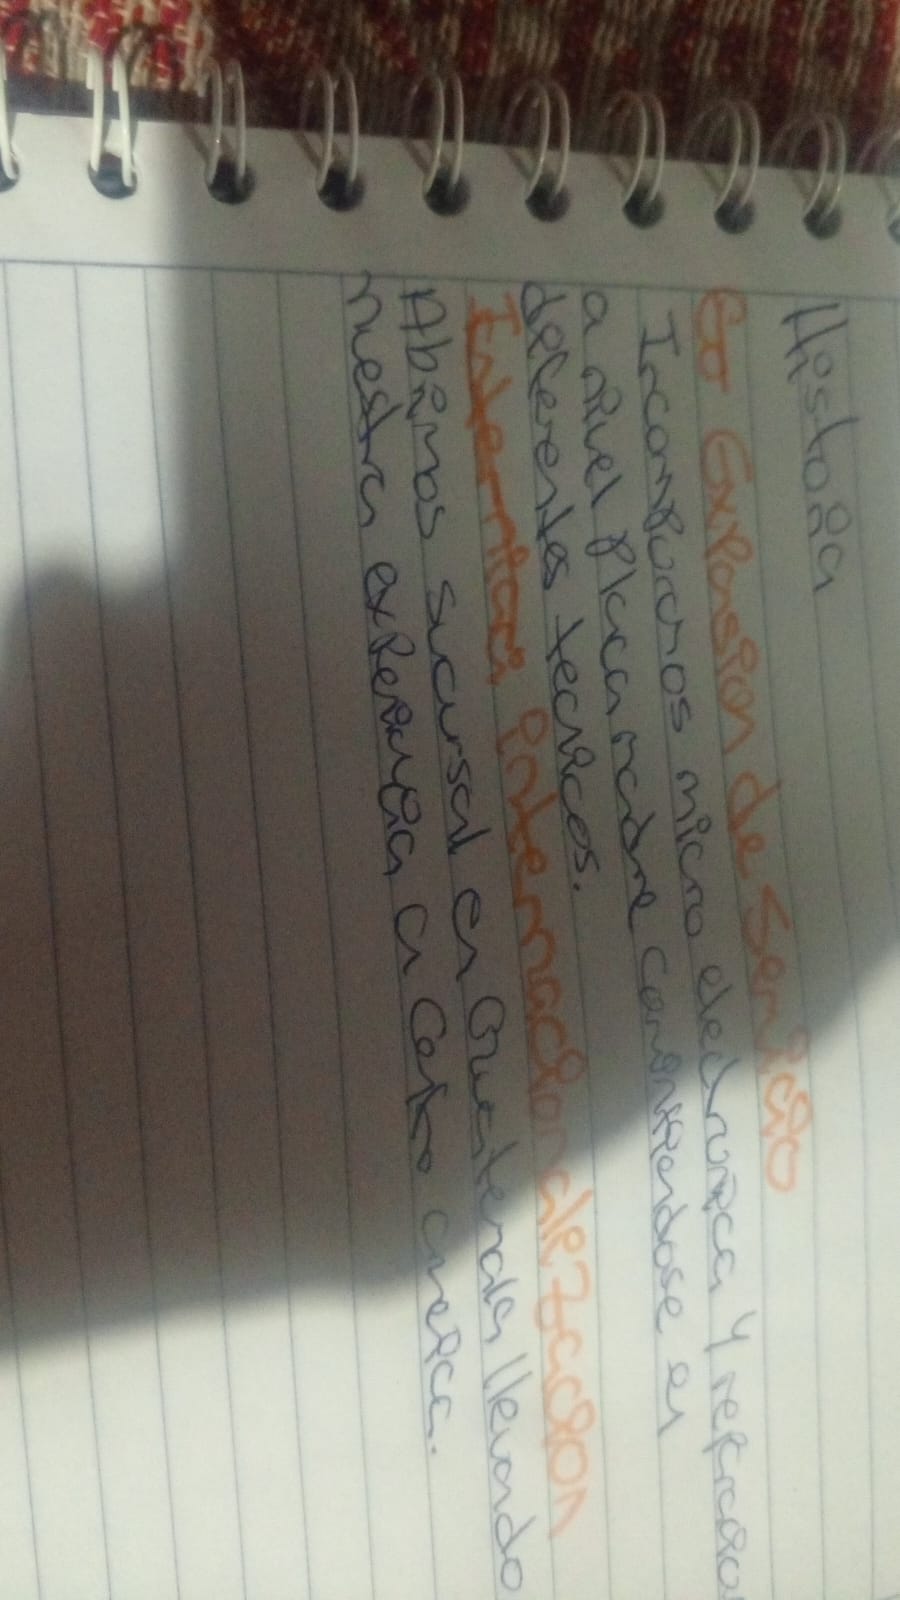 Historia
Expansion de Servicio
Incorporamos micro electronica y reparacion
a nivel placa madre convirtiendose en
deferentes tecnicos.
internacionalezacion
Abrimos sucursal en Guatemala llevando
nuestra experiencia a Centro america.